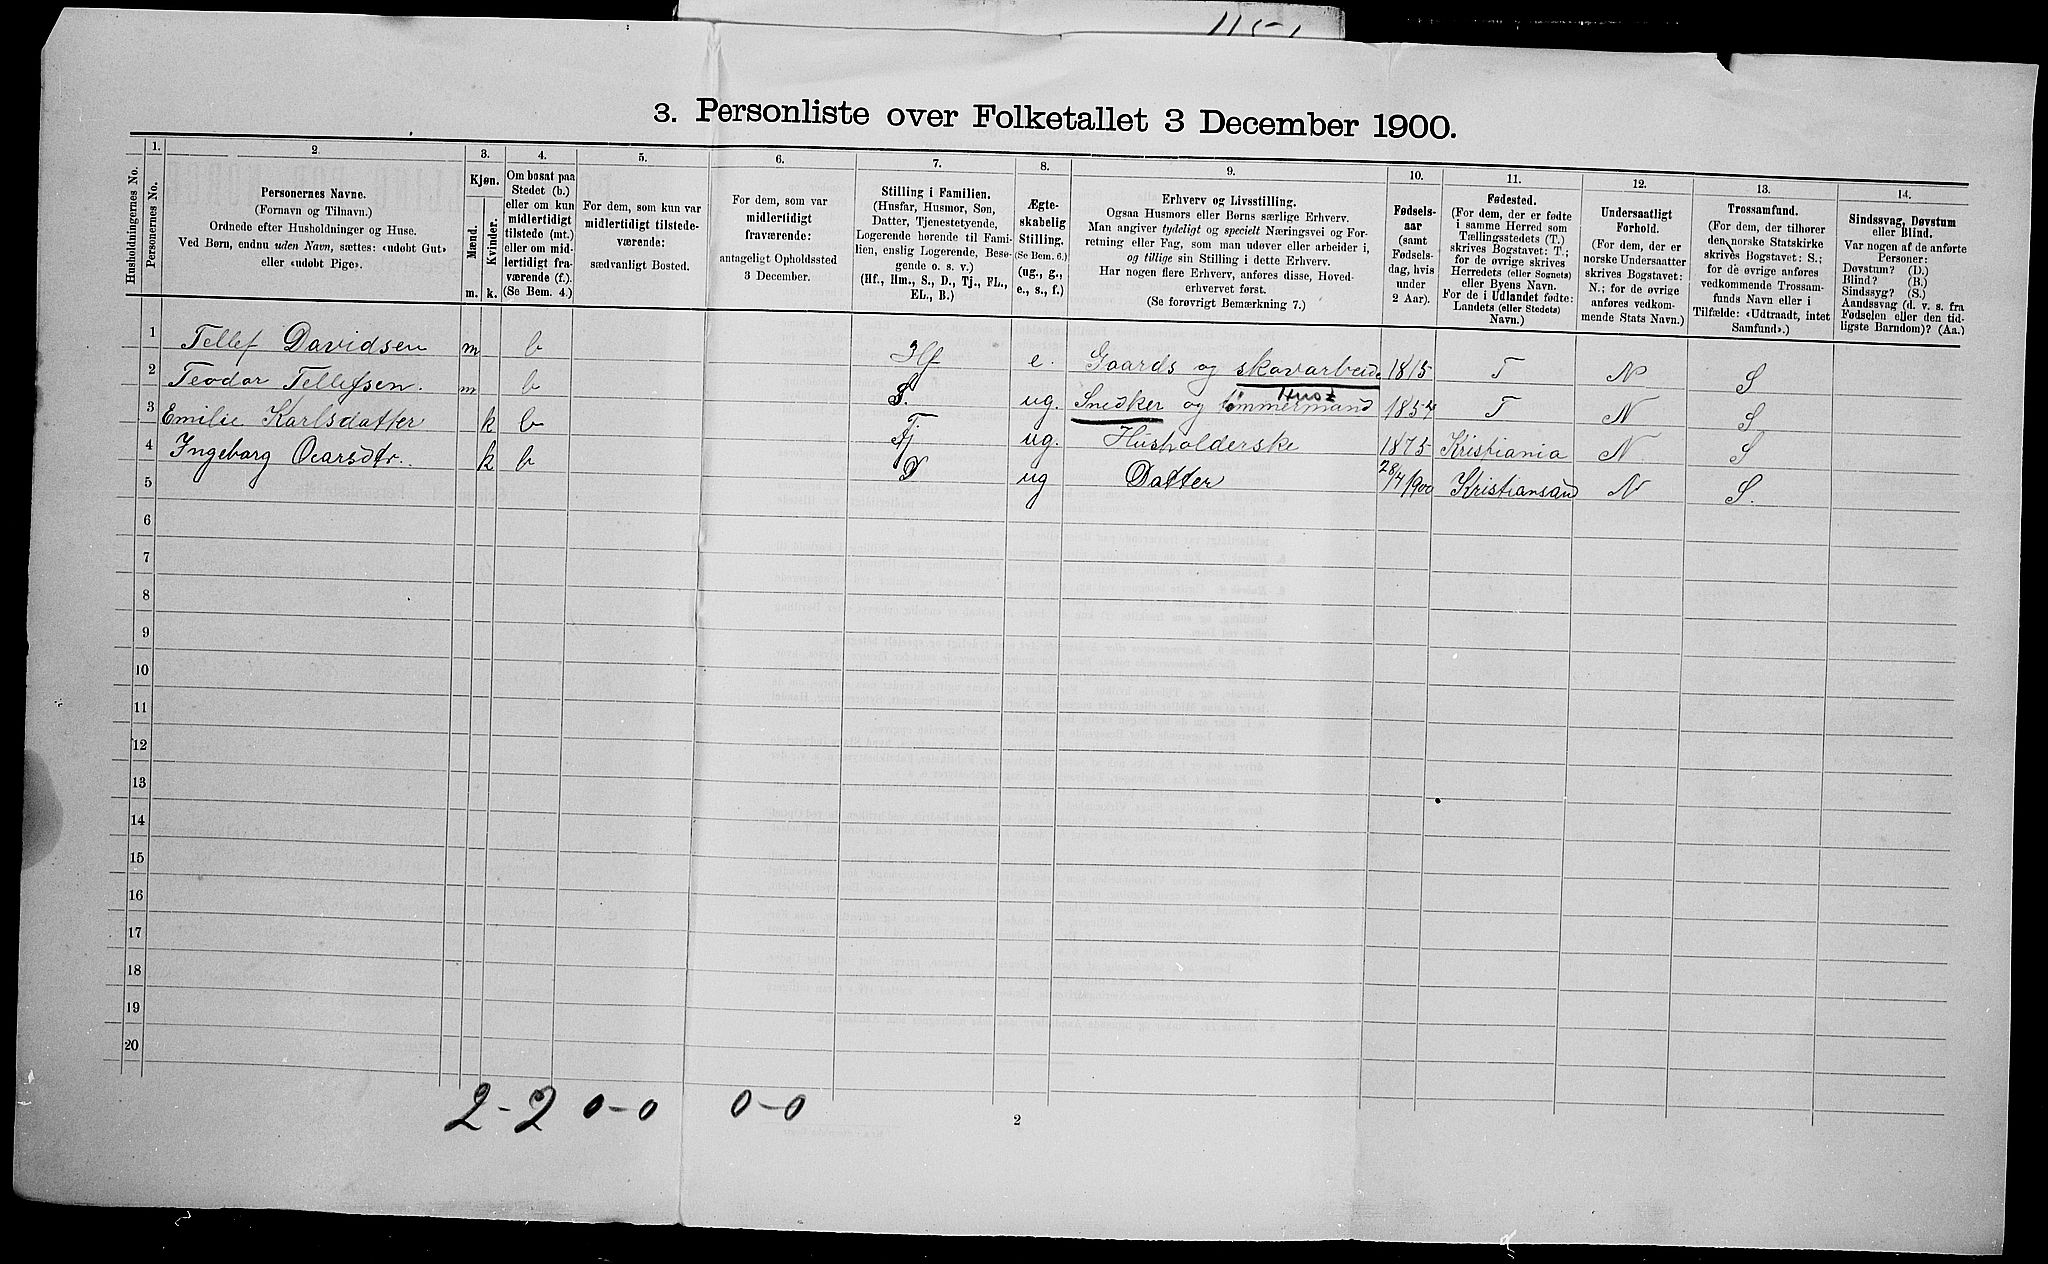 1151
3. Personliste over Folketallet 3 December 1900.
Husholdningernes No.
1.
Personernes No.
2.
Personernes Navne.
(Fornavn og Tilnavn.)
Ordnede efter Husholdninger og Huse.
Ved Børn, endnu uden Navn, sættes: «udøbt Gut»
eller «udøbt Pige».
3.
Kjøn.
Mænd.
Kvinder.
m. k.
4.
Om bosat paa
Stedet (b.)
eller om kun
midlertidigt
tilstede (mt.)
eller om mid-
lertidigt fra-
værende (f.).
(Se Bem. 4.)
5.
For dem, som kun var
midlertidigt tilstede-
værende:
sædvanligt Bosted.
6.
For dem, som var
midlertidigt
fraværende:
antageligt Opholdssted
3 December.
7.
Stilling i Familien.
(Husfar, Husmor, Søn,
Datter, Tjenestetyende,
Logerende hørende til Fami-
lien, enslig Logerende, Besø-
gende o. s. v.)
(Hf., Hm., S., D., Tj., FL.,
EL., B.)
8.
Ægte-
skabelig
Stilling.
(Se Bem. 6.)
(ug., g.,
e., s., f.)
9.
Erhverv og Livsstilling.
Ogsaa Husmors eller Børns særlige Erhverv.
Man angiver tydeligt og specielt Næringsvei og For-
retning eller Fag, som man udøver eller arbeider i,
og tillige sin Stilling i dette Erhverv.
Har nogen flere Erhverv, anføres disse, Hoved-
erhvervet først.
(Se forøvrigt Bemærkning 7.)
10.
Fødsels-
aar
(samt
Fødsels-
dag, hvis
under
2 Aar).
11.
Fødested.
(For dem, der er fødte
i samme Herred som
Tællingsstedets (T.)
skrives Bogstavet: T.;
for de øvrige skrives
Herredets (eller Sognets)
eller Byens Navn.
For de i Udlandet fødte:
Landets (eller Stedets)
Navn.)
12.
Undersaatligt
Forhold.
(For dem, der er
norske Undersaatter
skrives Bogstavet:
N.; for de øvrige
anføres vedkom-
mende Stats Navn.)
13.
Trossamfund.
(For dem, der tilhører
den norske Statskirke
skrives Bogstavet: S.;
for de øvrige anføres
vedkommende Trossam-
funds Navn eller i
Tilfælde: «Udtraadt, intet
Samfund».)
14.
Sindssvag, Døvstum
eller Blind.
Var nogen af de anførte
Personer:
Døvstum? (D.)
Blind? (B.)
Sindssyg? (S.)
Aandssvag (d. v. s. fra
Fødselen eller den tid-
ligste Barndom)? (Aa.)
1 Tellef Davidsen m b Hf e. Gaards og skovarbeid. 1815 T N S
Hus
2 Teodor Tellefsen. m b S. ug. Snedker og tømmermand 1854 T N S
3 Emilie Karlsdatter k b Tj ug. Husholderske 1875 Kristiania N S
4 Ingeborg k b D ug Datter 28/4 1900 Kristiansand N S.
5
6
7
8
9
10
11
12
13
14
15
16
17
18
19
20
2-2 0-0 0-0
2